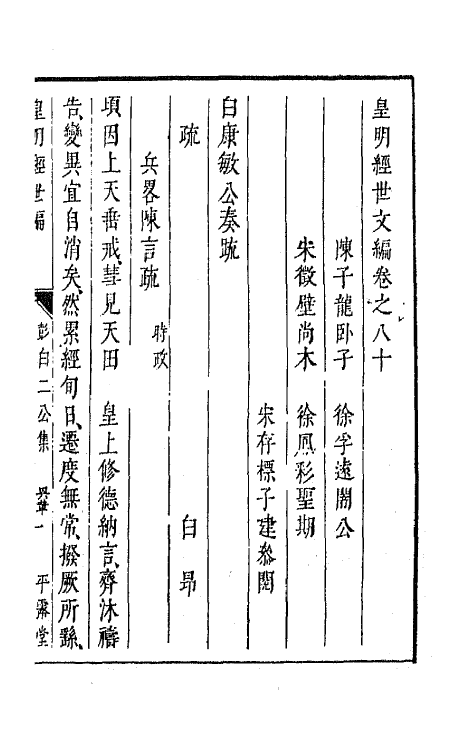 皇明經世文編卷之八十
陳子龍卧子　徐孚遠闇公
宋徵璧尚木　徐鳳彩聖期
宋存標子建叅閱
白康敏公奏疏
疏　白昂
兵畧陳言疏　時政
項因上天垂戒、彗見天田　皇上修德納言、齊沐禱
告、變異宜自消矣、然累經旬日、遷度無常、撥厥所繇、
皇明經世編　彭白二公集　卷一　平露堂